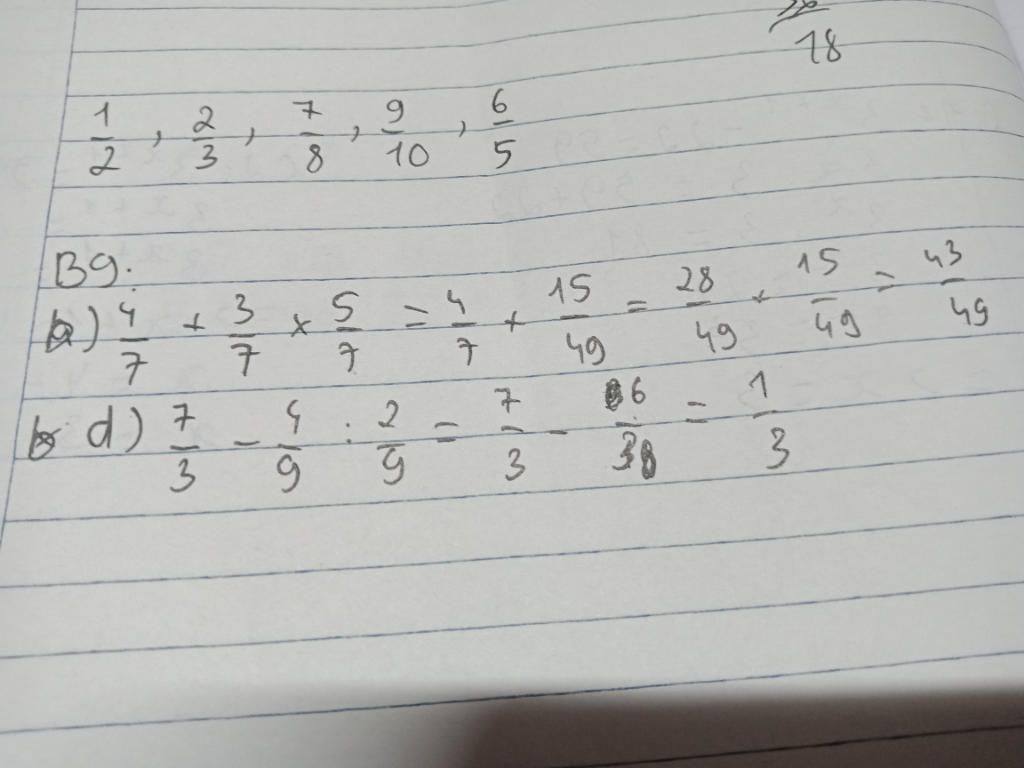 18
1/2 , 2/3 , 7/8 , 9/10 , 6/5
B9:
a) 4/7 + 3/7 x 5/7 = 4/7 + 15/49 = 28/49 + 15/49 = 43/49
d) 7/3 - 4/9 : 2/9 = 7/3 - 6/3 = 1/3